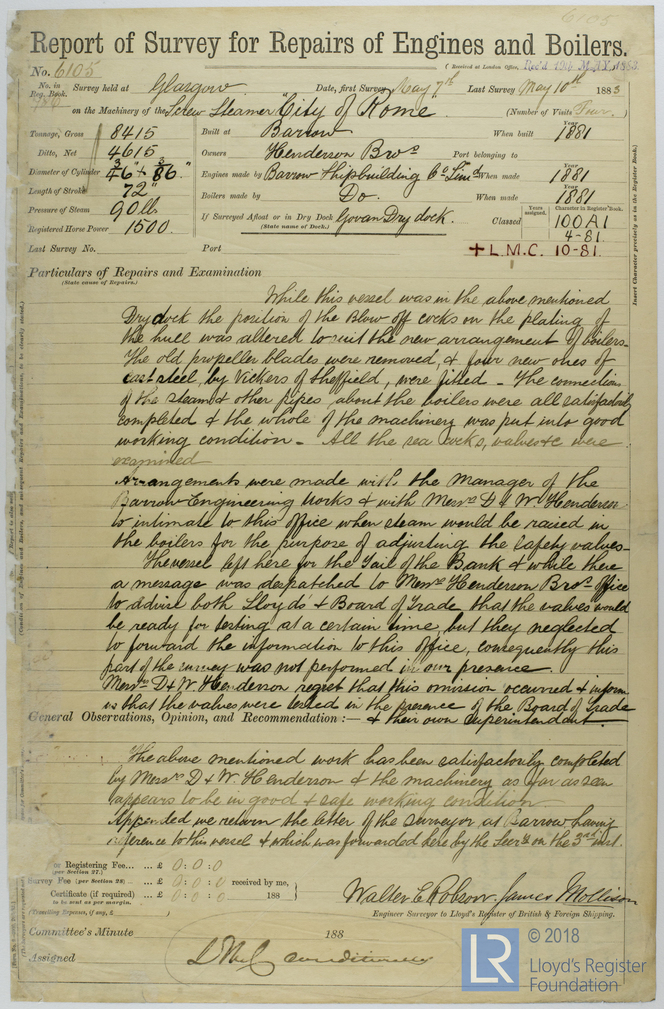 6105
Report of Survey for Repairs of Engines and Boilers.
(Received at London Office, Rec'd 19th MAY 1883
No. 6105
No. in Reg. Book. Survey held at Glasgow Date, first Survey May 7th Last Survey May 10th 1883
on the Machinery of the Screw Steamer "City of Rome" (Number of Visits Four.)
Tonnage, Gross 8415 Built at Barrow When built Year 1881
Ditto, Net 4615 Owners Henderson Bros Port belonging to
Diameter of Cylinder 3/46" + 3/86" Engines made by Barrow Shipbuilding Co Limd When made Year 1881
Length of Stroke 72" Boilers made by Do. When made Year 1881
Pressure of Steam 90 lbs If Surveyed Afloat or in Dry Dock Govan Dry dock. Classed Years assigned. Character in Register Book. 100 A1
Registered Horse Power 1500 (State name of Dock.) 4-81.
Last Survey No. Port + L.M.C. 10-81.
Insert Character precisely as in the Register Book.
Particulars of Repairs and Examination
(State cause of Repairs.)
While this vessel was in the above mentioned
Dry dock the position of the Blow off cocks on the plating of
the hull was altered to suit the new arrangement of boilers-
The old propeller blades were removed, & four new ones of
cast steel, by Vickers of Sheffield, were fitted - The connections
of the steam & other pipes about the boilers were all satisfactorily
completed & the whole of the machinery was put into good
working condition - All the sea cocks, valves &c were
examined
Arrangements were made with the Manager of the
Barrow Engineering Works & with Messrs D & W. Henderson
to intimate to this office when steam would be raised in
the boilers for the purpose of adjusting the safety valves-
The vessel left here for the Tail of the Bank & while there
a message was despatched to Messrs Henderson Bros office
to advise both Lloyds' & Board of Trade that the valves would
be ready for testing at a certain time, but they neglected
to forward the information to this office, consequently this
part of the survey was not performed in our presence.
Messrs D & W. Henderson regret that this omission occurred & inform
us that the valves were tested in the presence of the Board of Trade
General Observations, Opinion, and Recommendation :— & their own Superintendant.
The above mentioned work has been satisfactorily completed
by Messrs D & W. Henderson & the machinery as far as seen
appears to be in good & safe working condition
Appended we return the letter of the surveyor at Barrow having
reference to this vessel & which was forwarded here by the Secry on the 3rd inst.
or Registering Fee... ... £ 0 : 0 : 0
(per Section 27.)
Survey Fee (per Section 28) ... £ 0 : 0 : 0 received by me,
Certificate (if required) ... £ 0 : 0 : 0 188
to be sent as per margin.
(Travelling Expenses, if any, £ )
Walter C Robson. James Mollison
Engineer Surveyor to Lloyd's Register of British & Foreign Shipping.
Committee's Minute 188
Assigned LMC conditionally
LR
© 2018
Lloyd's Register
Foundation